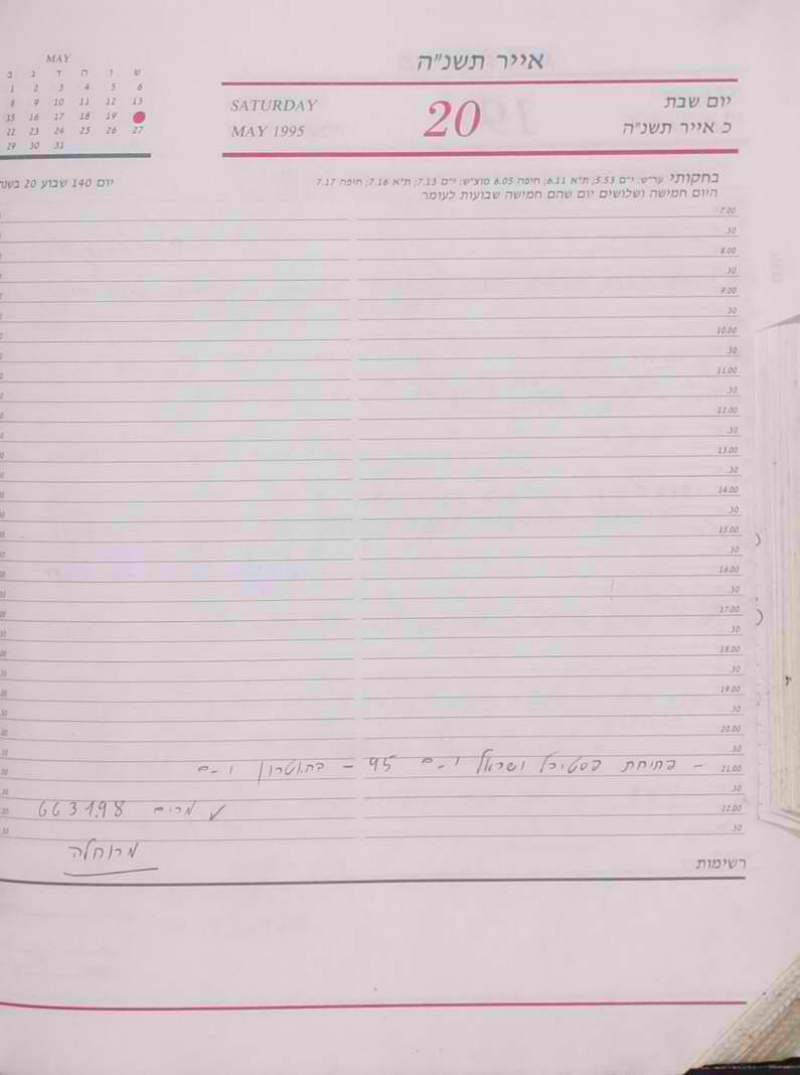 אייר תשנ"ה
MAY
ב ג ד ה ו ש
1 2 3 4 5 6
8 9 10 11 12 13
15 16 17 18 19
22 23 24 25 26 27
29 30 31
יום שבת
כ אייר תשנ"ה
20
SATURDAY
MAY 1995
בחקותי ער"ש: י"ם 5.53; ת"א 6.11; חיפה 6.05 מוצ"ש: י"ם 7.13; ת"א 7.16; חיפה 7.17
היום חמישה ושלושים יום שהם חמישה שבועות לעומר
יום 140 שבוע 20 בשנה
7.00
.30
8.00
.30
9.00
.30
10.00
.30
11.00
.30
12.00
.30
13.00
.30
14.00
.30
15.00
.30
16.00
.30
17.00
.30
18.00
.30
19.00
.30
20.00
.30
21.00 - פתיחת פסטיבל ישראל י-ם 95 - בתאטרון י-ם
.30
22.00 מרים 663198
.30
רשימות